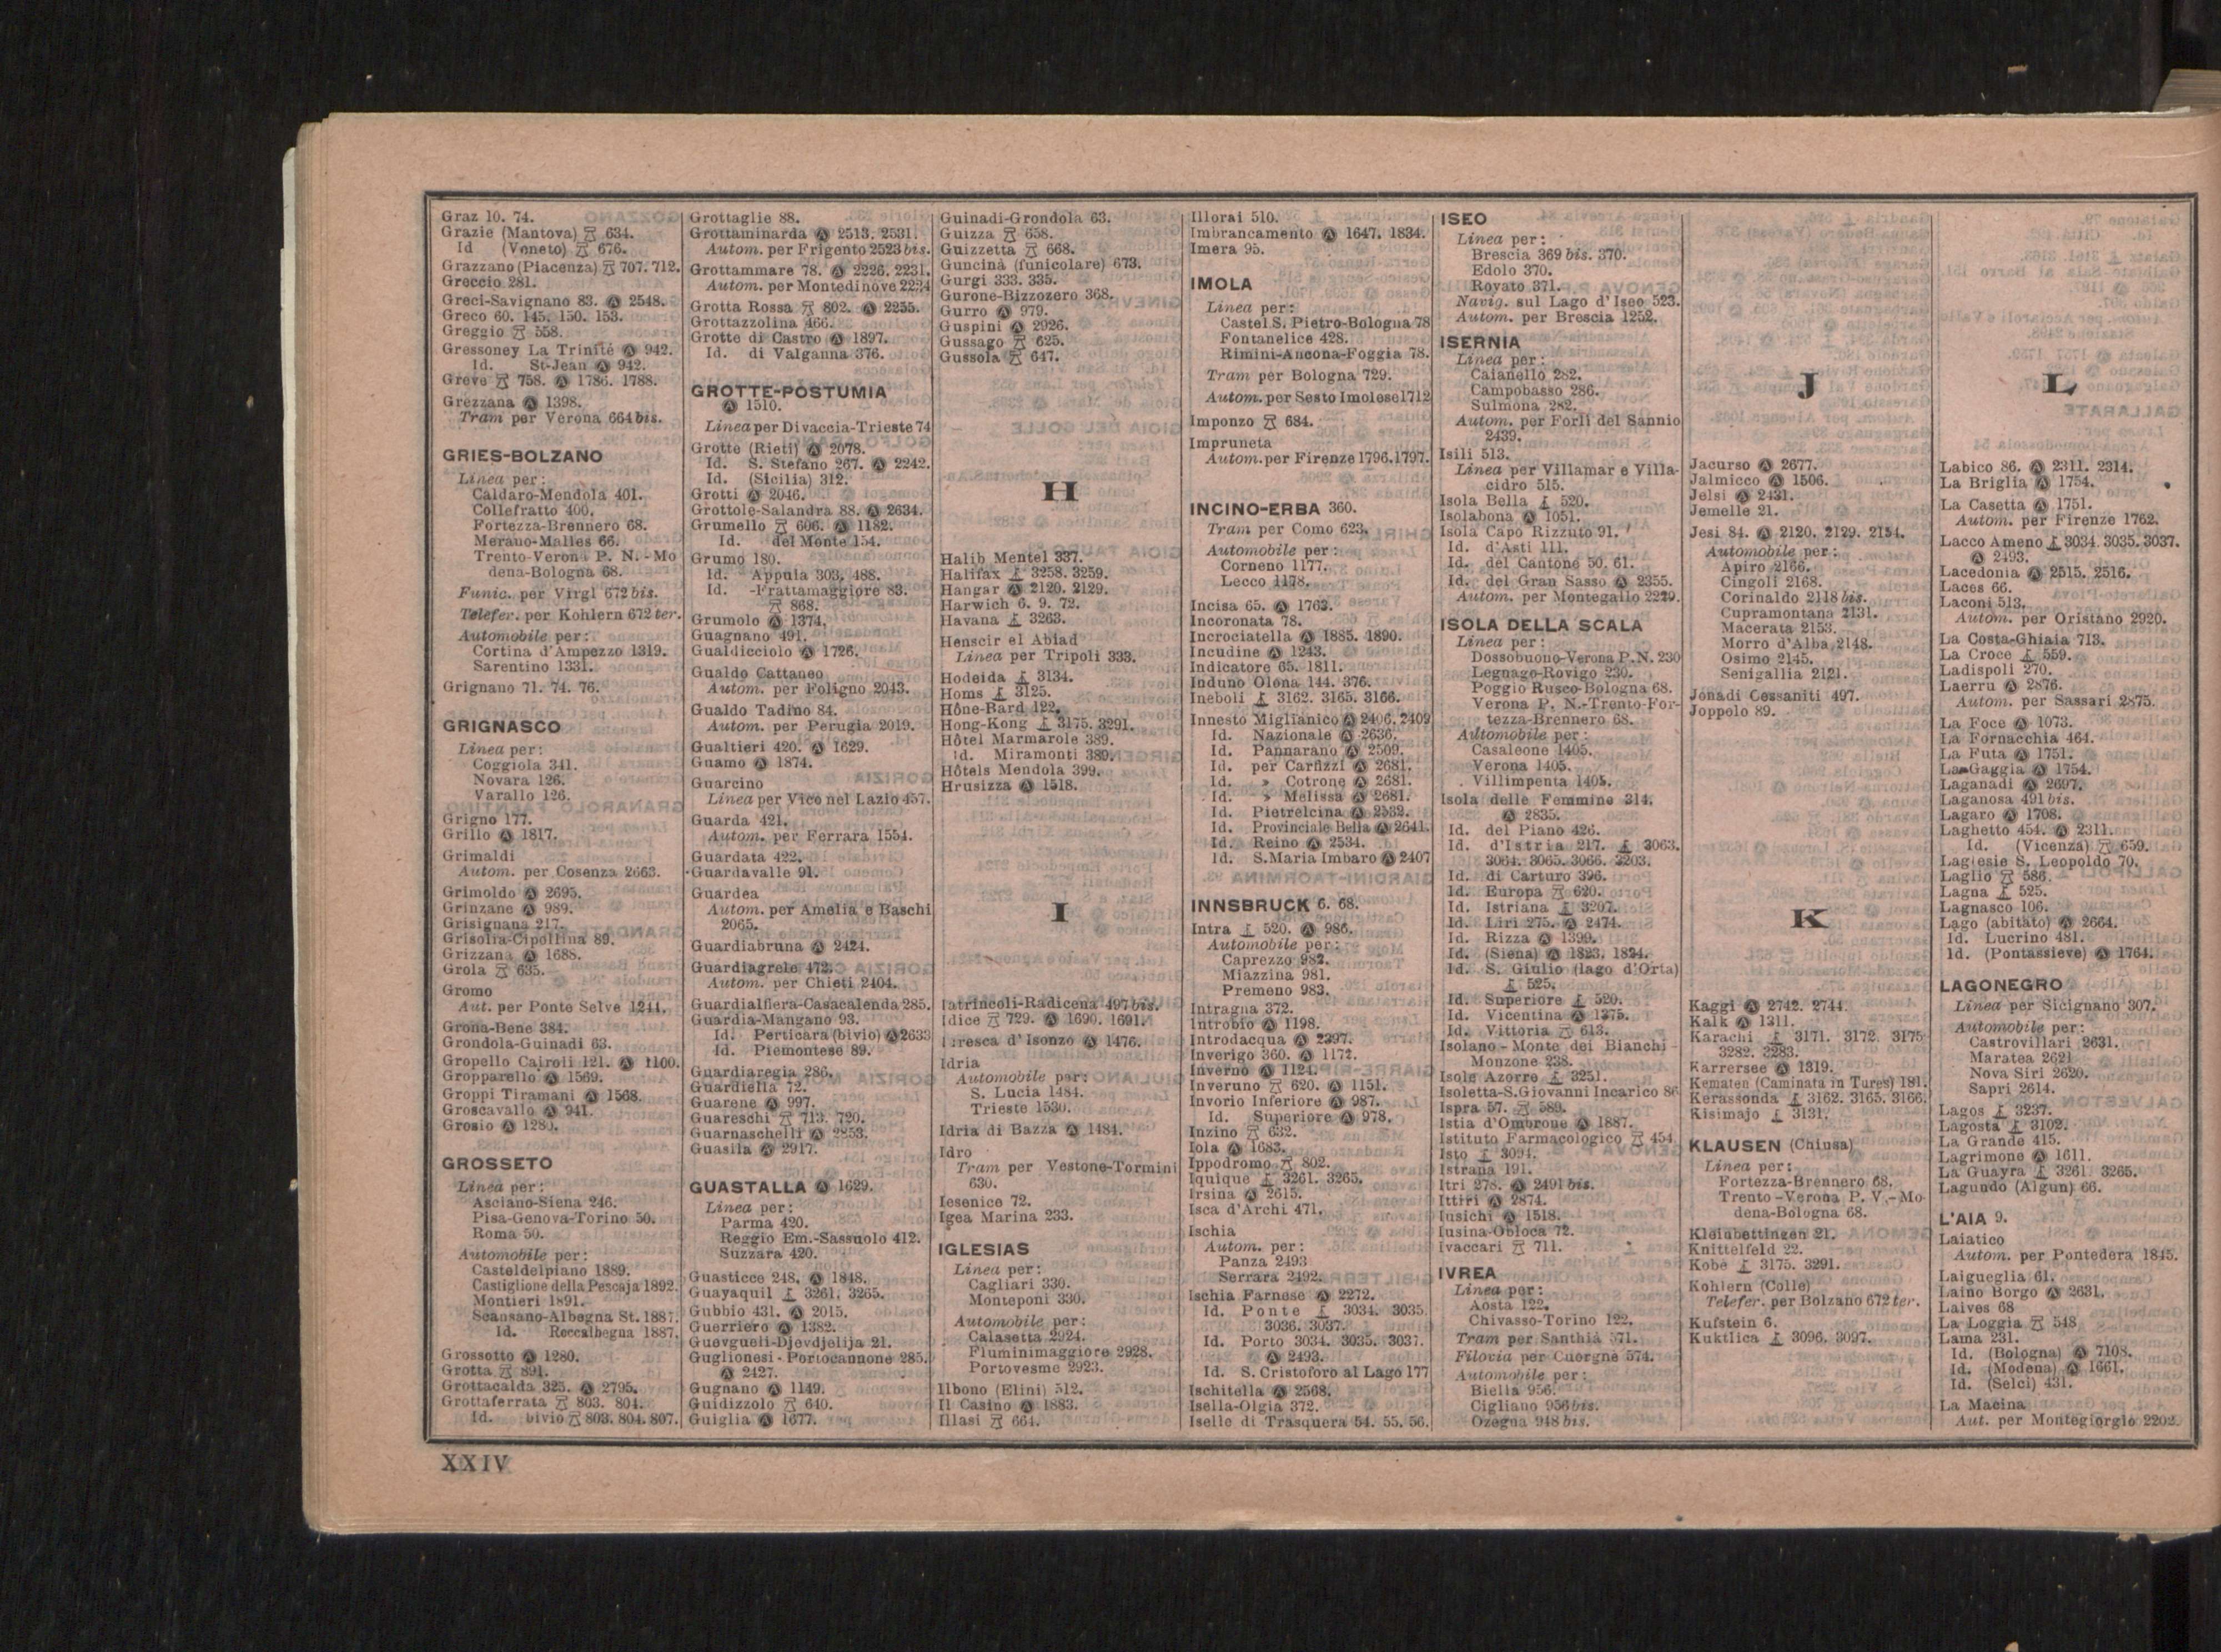 Graz 10. 74.
Grazie (Mantova) 634.
Id (Veneto) 676.
Grazzano (Piacenza) 707. 712.
Greccio 281.
Greci-Savignano 83. Ⓐ 2548.
Greco 60. 145. 150. 153.
Greggio 558.
Gressoney La Trinité Ⓐ 942.
Id. St-Jean Ⓐ 942.
Greve 758. Ⓐ 1786. 1788.
Grezzana Ⓐ 1398.
Tram per Verona 664 bis.
GRIES-BOLZANO
Linea per:
Caldaro-Mendola 401.
Collefratto 400.
Fortezza-Brennero 68.
Merano-Malles 66.
Trento-Verona P. N.-Mo
dena-Bologna 68.
Funic. per Virgl 672 bis.
Telefer. per Kohlern 672 ter.
Automobile per:
Cortina d'Ampezzo 1319.
Sarentino 1331.
Grignano 71. 74. 76.
GRIGNASCO
Linea per:
Coggiola 341.
Novara 126.
Varallo 126.
Grigno 177.
Grillo Ⓐ 1817.
Grimaldi
Autom. per Cosenza 2663.
Grimoldo Ⓐ 2695.
Grinzane Ⓐ 989.
Grisignana 217.
Grisolia-Cipollina 89.
Grizzana Ⓐ 1688.
Grola 635.
Gromo
Aut. per Ponte Selve 1241.
Grona-Bene 384.
Grondola-Guinadi 63.
Gropello Cairoli 121. Ⓐ 1100.
Gropparello Ⓐ 1569.
Groppi Tiramani Ⓐ 1568.
Groscavallo Ⓐ 941.
Grosio Ⓐ 1280.
GROSSETO
Linea per:
Asciano-Siena 246.
Pisa-Genova-Torino 50.
Roma 50.
Automobile per:
Casteldelpiano 1889.
Castiglione della Pescaja 1892.
Montieri 1891.
Scansano-Albegna St. 1887.
Id. Roccalbegna 1887.
Grossotto Ⓐ 1280.
Grotta 891.
Grottacalda 325. Ⓐ 2795.
Grottaferrata 803. 804.
Id. bivio 803. 804. 807.
Grottaglie 88.
Grottaminarda Ⓐ 2513. 2531.
Autom. per Frigento 2523 bis.
Grottammare 78. Ⓐ 2226. 2231.
Autom. per Montedinove 2224
Grotta Rossa 802. Ⓐ 2255.
Grottazzolina 466.
Grotte di Castro Ⓐ 1897.
Id. di Valganna 376.
GROTTE-POSTUMIA
Ⓐ 1510.
Linea per Divaccia-Trieste 74
Grotte (Rieti) Ⓐ 2078.
Id. S. Stefano 267. Ⓐ 2242.
Id. (Sicilia) 312.
Grotti Ⓐ 2046.
Grottole-Salandra 88. Ⓐ 2634.
Grumello 606. Ⓐ 1182.
Id. del Monte 154.
Grumo 180.
Id. Appula 303. 488.
Id. -Frattamaggiore 83.
868.
Grumolo Ⓐ 1374.
Guagnano 491.
Gualdicciolo Ⓐ 1726.
Gualdo Cattaneo
Autom. per Foligno 2043.
Gualdo Tadino 84.
Autom. per Perugia 2019.
Gualtieri 420. Ⓐ 1629.
Guamo Ⓐ 1874.
Guarcino
Linea per Vico nel Lazio 457.
Guarda 421.
Autom. per Ferrara 1554.
Guardata 422.
Guardavalle 91.
Guardea
Autom. per Amelia e Baschi
2065.
Guardiabruna Ⓐ 2424.
Guardiagrele 472.
Autom. per Chieti 2404.
Guardialfiera-Casacalenda 285.
Guardia-Mangano 93.
Id. Perticara (bivio) Ⓐ 2633
Id. Piemontese 89.
Guardiaregia 286.
Guardiella 72.
Guarene Ⓐ 997.
Guareschi 713. 720.
Guarnaschelli Ⓐ 2853.
Guasila Ⓐ 2917.
GUASTALLA Ⓐ 1629.
Linea per:
Parma 420.
Reggio Em.-Sassuolo 412.
Suzzara 420.
Guasticce 248. Ⓐ 1848.
Guayaquil 3261. 3265.
Gubbio 431. Ⓐ 2015.
Guerriero Ⓐ 1382.
Guevgueli-Djevdjelija 21.
Guglionesi-Portocannone 285.
Ⓐ 2427.
Gugnano Ⓐ 1149.
Guidizzolo 640.
Guiglia Ⓐ 1677.
Guinadi-Grondola 63.
Guizza 658.
Guizzetta 668.
Guncinà (funicolare) 673.
Gurgi 333. 335.
Gurone-Bizzozero 368.
Gurro Ⓐ 979.
Guspini Ⓐ 2926.
Gussago 625.
Gussola 647.
H
Halib Mentel 337.
Halifax 3258. 3259.
Hangar Ⓐ 2120. 2129.
Harwich 6. 9. 72.
Havana 3263.
Henscir el Abiad
Linea per Tripoli 333.
Hodeida 3134.
Homs 3125.
Hône-Bard 122.
Hong-Kong 3175. 3291.
Hôtel Marmarole 389.
Id. Miramonti 389.
Hôtels Mendola 399.
Hrusizza Ⓐ 1518.
I
Iatrincoli-Radicena 497 bis.
Idice 729. Ⓐ 1690. 1691.
d'Isonzo Ⓐ 1476.
Idria
Automobile per:
S. Lucia 1484.
Trieste 1530.
Idria di Bazza Ⓐ 1484.
Idro
Tram per Vestone-Tormini
630.
Iesenice 72.
Igea Marina 233.
IGLESIAS
Linea per:
Cagliari 330.
Monteponi 330.
Automobile per:
Calasetta 2924.
Fluminimaggiore 2928.
Portovesme 2923.
Ilbono (Elini) 512.
Il Casino Ⓐ 1883.
Illasi 664.
Illorai 510.
Imbrancamento Ⓐ 1647. 1834.
Imera 95.
IMOLA
Linea per:
Castel S. Pietro-Bologna 78
Fontanelice 428.
Rimini-Ancona-Foggia 78.
Tram per Bologna 729.
Autom. per Sesto Imolese 1712
Imponzo 684.
Impruneta
Autom. per Firenze 1796. 1797.
INCINO-ERBA 360.
Tram per Como 623.
Automobile per:
Corneno 1177.
Lecco 1178.
Incisa 65. Ⓐ 1763.
Incoronata 78.
Incrociatella Ⓐ 1885. 1890.
Incudine Ⓐ 1243.
Indicatore 65. 1811.
Induno Olona 144. 376.
Ineboli 3162. 3165. 3166.
Innesto Miglianico Ⓐ 2406. 2409
Id. Nazionale Ⓐ 2636.
Id. Pannarano Ⓐ 2509.
Id. per Carfizzi Ⓐ 2681.
Id. » Cotrone Ⓐ 2681.
Id. » Melissa Ⓐ 2681.
Id. Pietrelcina Ⓐ 2532.
Id. Provinciale Bella Ⓐ 2641.
Id. Reino Ⓐ 2534.
Id. S. Maria Imbaro Ⓐ 2407
INNSBRUCK 6. 68.
Intra 520. Ⓐ 986.
Automobile per:
Caprezzo 982.
Miazzina 981.
Premeno 983.
Intragna 372.
Introbio Ⓐ 1198.
Introdacqua Ⓐ 2397.
Inverigo 360. Ⓐ 1172.
Inverno Ⓐ 1124.
Inveruno 620. Ⓐ 1151.
Invorio Inferiore Ⓐ 987.
Id. Superiore Ⓐ 978.
Inzino 632.
Iola Ⓐ 1683.
Ippodromo 802.
Iquique 3261. 3265.
Irsina Ⓐ 2615.
Isca d'Archi 471.
Ischia
Autom. per:
Panza 2493
Serrara 2492.
Ischia Farnese Ⓐ 2272.
Id. Ponte 3034. 3035.
3036. 3037.
Id. Porto 3034. 3035. 3037.
Ⓐ 2493.
Id. S. Cristoforo al Lago 177
Ischitella Ⓐ 2568.
Isella-Olgia 372.
Iselle di Trasquera 54. 55. 56.
ISEO
Linea per:
Brescia 369 bis. 370.
Edolo 370.
Rovato 371.
Navig. sul Lago d'Iseo 523.
Autom. per Brescia 1252.
ISERNIA
Linea per:
Caianello 282.
Campobasso 286.
Sulmona 282.
Autom. per Forlì del Sannio
2439.
Isili 513.
Linea per Villamar e Villa-
cidro 515.
Isola Bella 520.
Isolabona Ⓐ 1051.
Isola Capo Rizzuto 91.
Id. d'Asti 111.
Id. del Cantone 50. 61.
Id. del Gran Sasso Ⓐ 2355.
Autom. per Montegallo 2229.
ISOLA DELLA SCALA
Linea per:
Dossobuono-Verona P.N. 230
Legnago-Rovigo 230.
Poggio Rusco-Bologna 68.
Verona P. N.-Trento-For-
tezza-Brennero 68.
Automobile per:
Casaleone 1405.
Verona 1405.
Villimpenta 1405.
Isola delle Femmine 314.
Ⓐ 2835.
Id. del Piano 426.
Id. d'Istria 217. 3063.
3064. 3065. 3066. 3203.
Id. di Carturo 396.
Id. Europa 620.
Id. Istriana 3207.
Id. Liri 275. Ⓐ 2474.
Id. Rizza Ⓐ 1399.
Id. (Siena) Ⓐ 1823. 1824.
Id. S. Giulio (lago d'Orta)
525.
Id. Superiore 520.
Id. Vicentina Ⓐ 1375.
Id. Vittoria 613.
Isolano-Monte dei Bianchi-
Monzone 238.
Isole Azorre 3251.
Isoletta-S. Giovanni Incarico 86
Ispra 57. 589.
Istia d'Ombrone Ⓐ 1887.
Istituto Farmacologico 454
Isto 3094.
Istrana 191.
Itri 278. Ⓐ 2491 bis.
Ittiri Ⓐ 2874.
Iusichi Ⓐ 1518.
Iusina-Obloca 72.
Ivaccari 711.
IVREA
Linea per:
Aosta 122.
Chivasso-Torino 122.
Tram per Santhià 571.
Filovia per Cuorgnè 574.
Automobile per:
Biella 956.
Cigliano 956 bis.
Ozegna 948 bis.
J
Jacurso Ⓐ 2677.
Jalmicco Ⓐ 1506.
Jelsi Ⓐ 2431.
Jemelle 21.
Jesi 84. Ⓐ 2120. 2129. 2154.
Automobile per:
Apiro 2166.
Cingoli 2168.
Corinaldo 2118 bis.
Cupramontana 2131.
Macerata 2153.
Morro d'Alba 2148.
Osimo 2145.
Senigallia 2121.
Jonadi Cessaniti 497.
Joppolo 89.
K
Kaggi Ⓐ 2742. 2744.
Kalk Ⓐ 1311.
Karachi 3171. 3172. 3175
3282. 3283.
Karrersee Ⓐ 1319.
Kematen (Caminata in Tures) 181.
Kerassonda 3162. 3165. 3166.
Kisimajo 3131.
KLAUSEN (Chiusa)
Linea per:
Fortezza-Brennero 68.
Trento-Verona P. V.-Mo-
dena-Bologna 68.
Kleinbettingen 21.
Knittelfeld 22.
Kobé 3175. 3291.
Kohlern (Colle)
Telefer. per Bolzano 672 ter.
Kufstein 6.
Kuktlica 3096. 3097.
L
Labico 86. Ⓐ 2311. 2314.
La Briglia Ⓐ 1754.
La Casetta Ⓐ 1751.
Autom. per Firenze 1762.
Lacco Ameno 3034. 3035. 3037.
Ⓐ 2493.
Lacedonia Ⓐ 2515. 2516.
Laces 66.
Laconi 513.
Autom. per Oristano 2920.
La Costa-Ghiaia 713.
La Croce 559.
Ladispoli 270.
Laerru Ⓐ 2876.
Autom. per Sassari 2875.
La Foce Ⓐ 1073.
La Fornacchia 464.
La Futa Ⓐ 1751.
La Gaggia Ⓐ 1754.
Laganadi Ⓐ 2697.
Laganosa 491 bis.
Lagaro Ⓐ 1708.
Laghetto 454. Ⓐ 2311.
Id. (Vicenza) 659.
Laglesie S. Leopoldo 70.
Laglio 586.
Lagna 525.
Lagnasco 106.
Lago (abitato) Ⓐ 2664.
Id. Lucrino 481.
Id. (Pontassieve) Ⓐ 1764.
LAGONEGRO
Linea per Sicignano 307.
Automobile per:
Castrovillari 2631.
Maratea 2621
Nova Siri 2620.
Sapri 2614.
Lagos 3237.
Lagosta 3102.
La Grande 415.
Lagrimone Ⓐ 1611.
La Guayra 3261. 3265.
Lagundo (Algun) 66.
L'AIA 9.
Laiatico
Autom. per Pontedera 1845.
Laigueglia 61.
Laino Borgo Ⓐ 2631.
Laives 68
La Loggia 548
Lama 231.
Id. (Bologna) Ⓐ 7108.
Id. (Modena) Ⓐ 1661.
Id. (Selci) 431.
La Macina
Aut. per Montegiorgio 2202.
XXIV